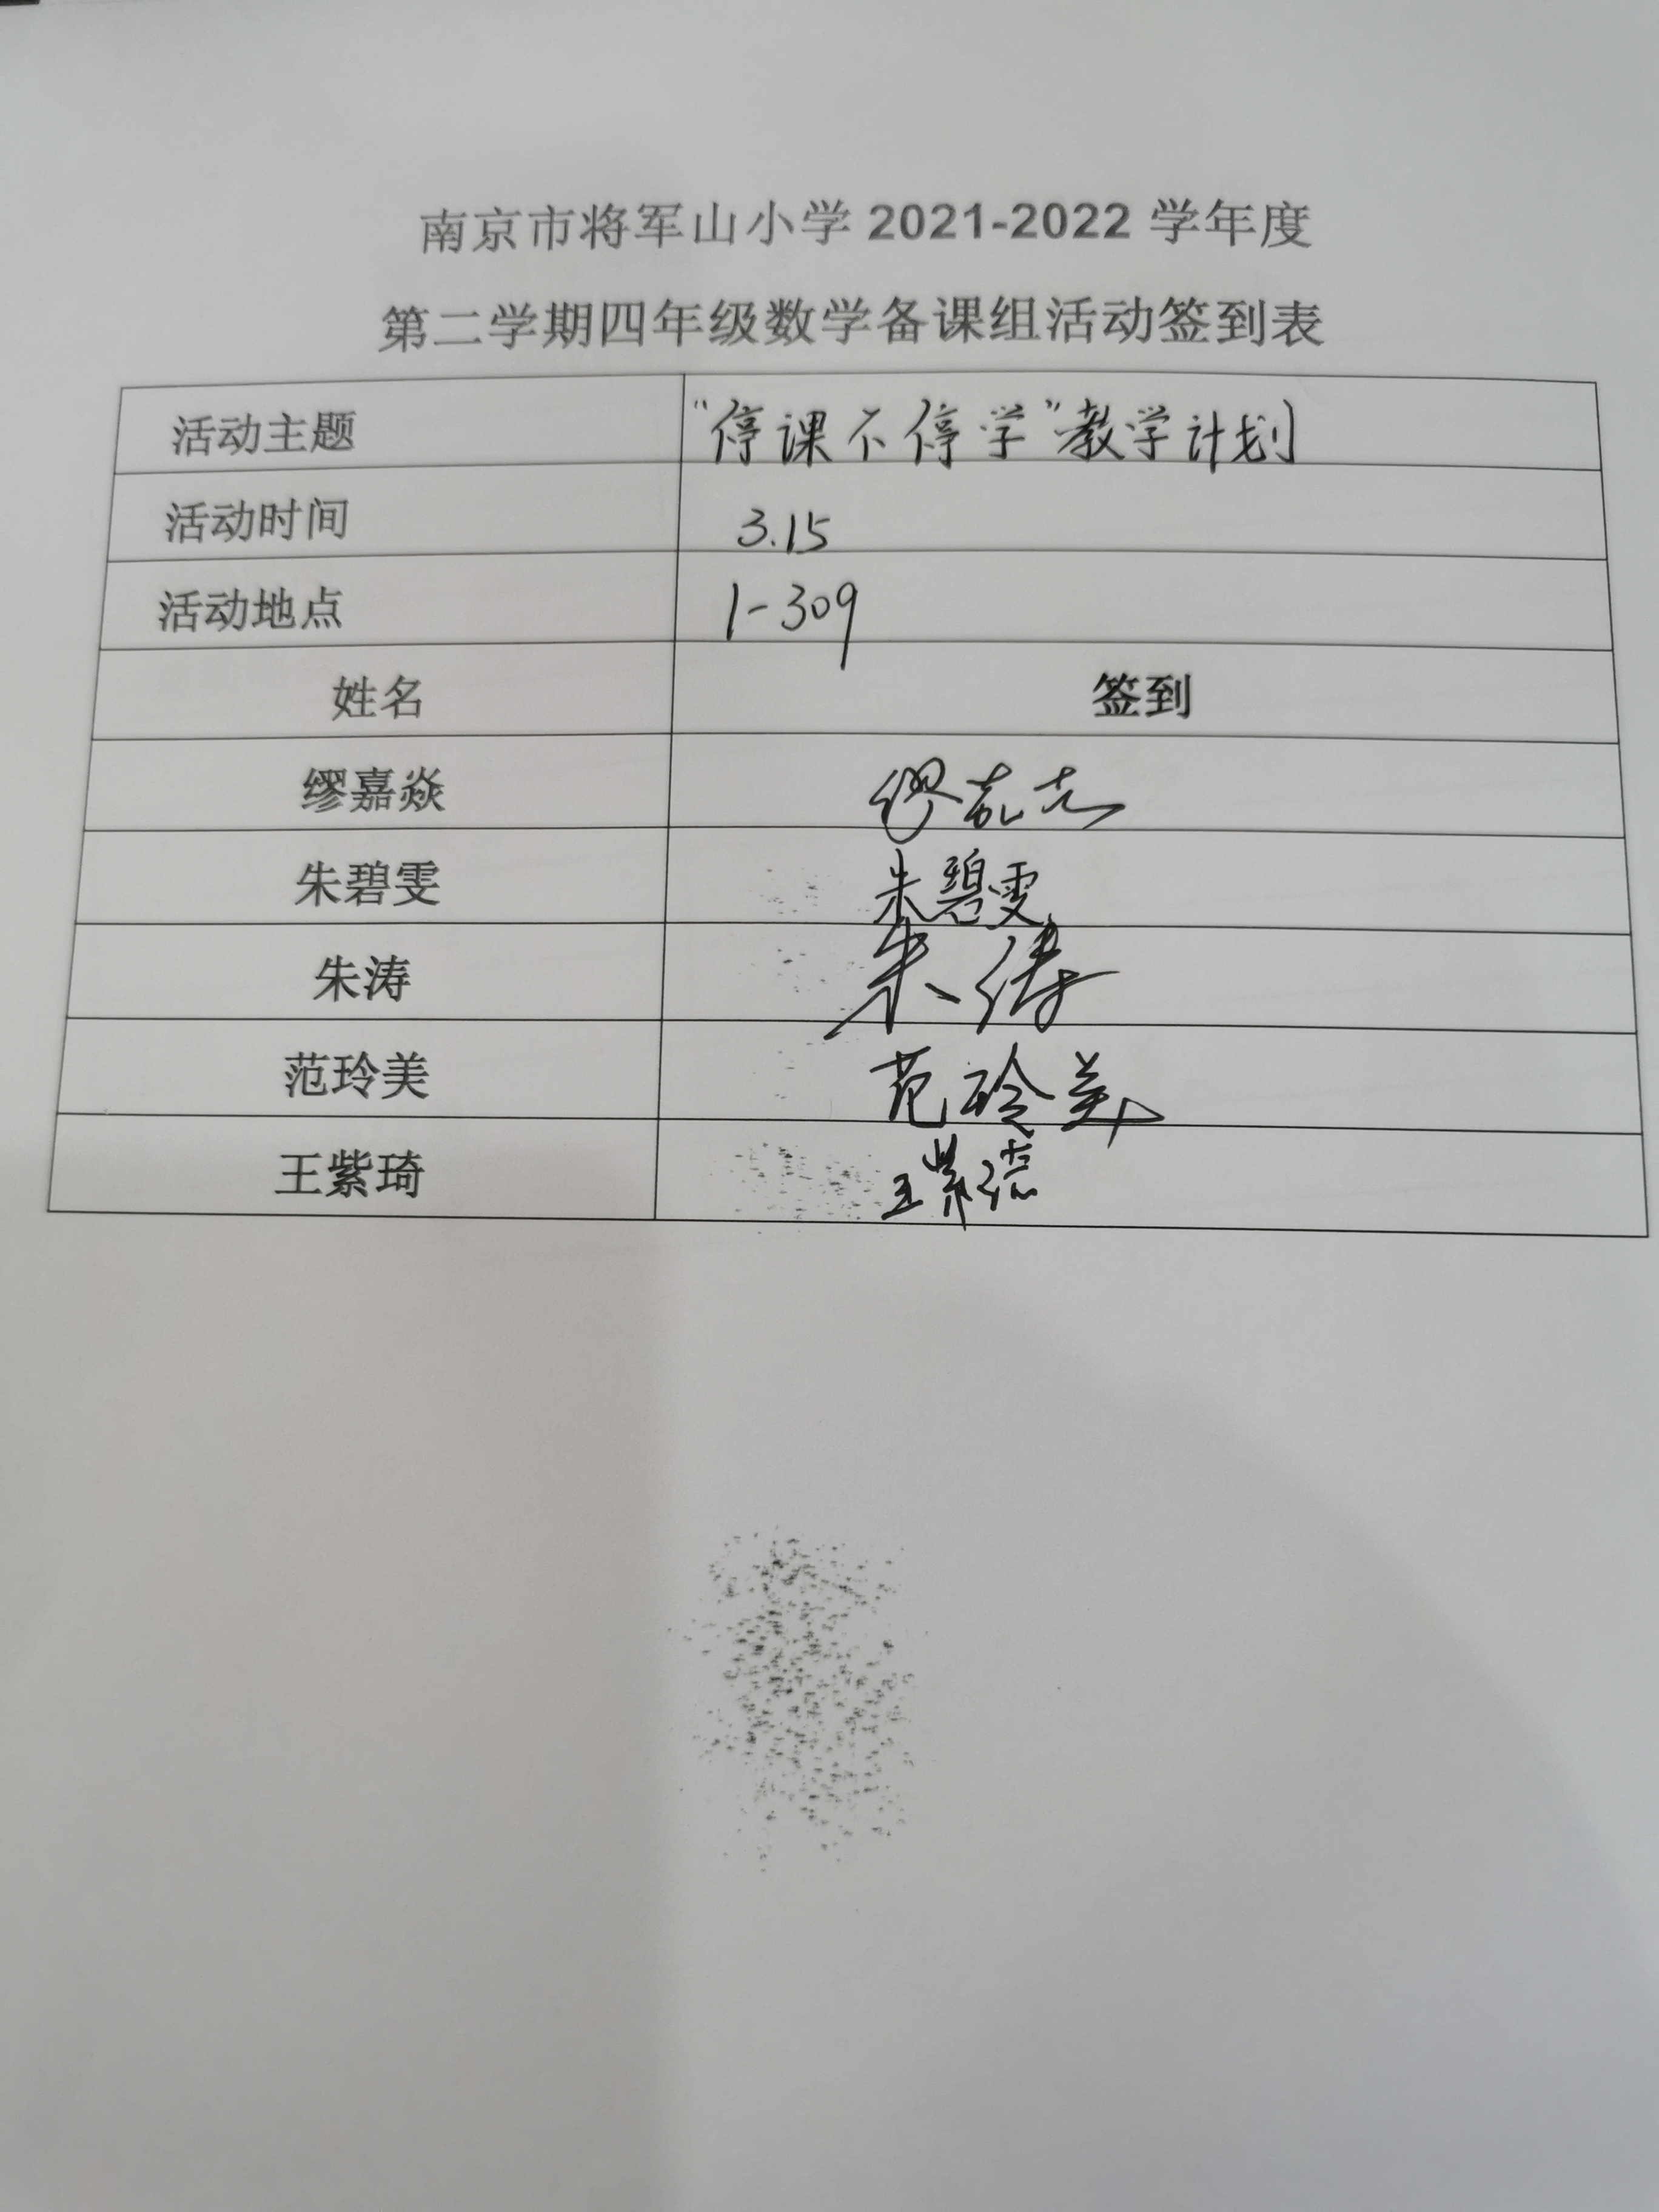 南京市将军山小学 2021-2022 学年度
第二学期四年级数学备课组活动签到表
活动主题 “停课不停学”教学计划
活动时间 3.15
活动地点 1-309
姓名 签到
缪嘉焱 缪嘉焱
朱碧雯 朱碧雯
朱涛 朱涛
范玲美 范玲美
王紫琦 王紫琦